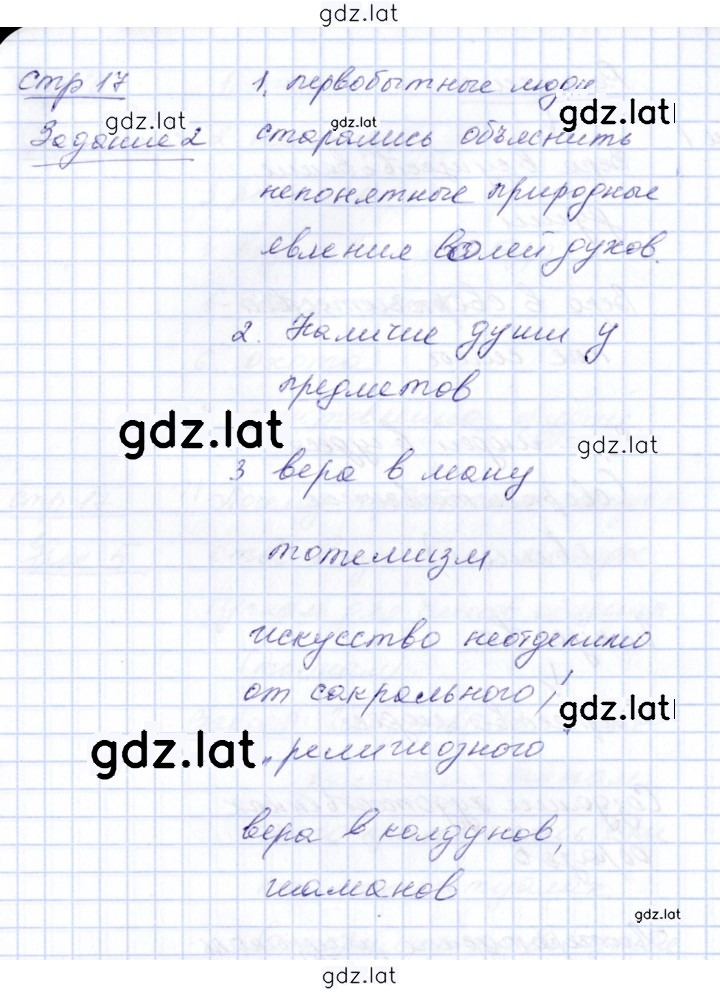 gdz.lat
стр 17
1. первобытные люди
gdz.lat
gdz.lat
gdz.lat
Задание 2
старались объяснить
непонятные природные
явления волей духов.
2. Наличие души у
предметов
gdz.lat
gdz.lat
3 вера в ману
тотемизм
искусство неотделимо
от сакрального/
gdz.lat
gdz.lat
„религиозного"
вера в колдунов,
шаманов
gdz.lat
gdz.lat